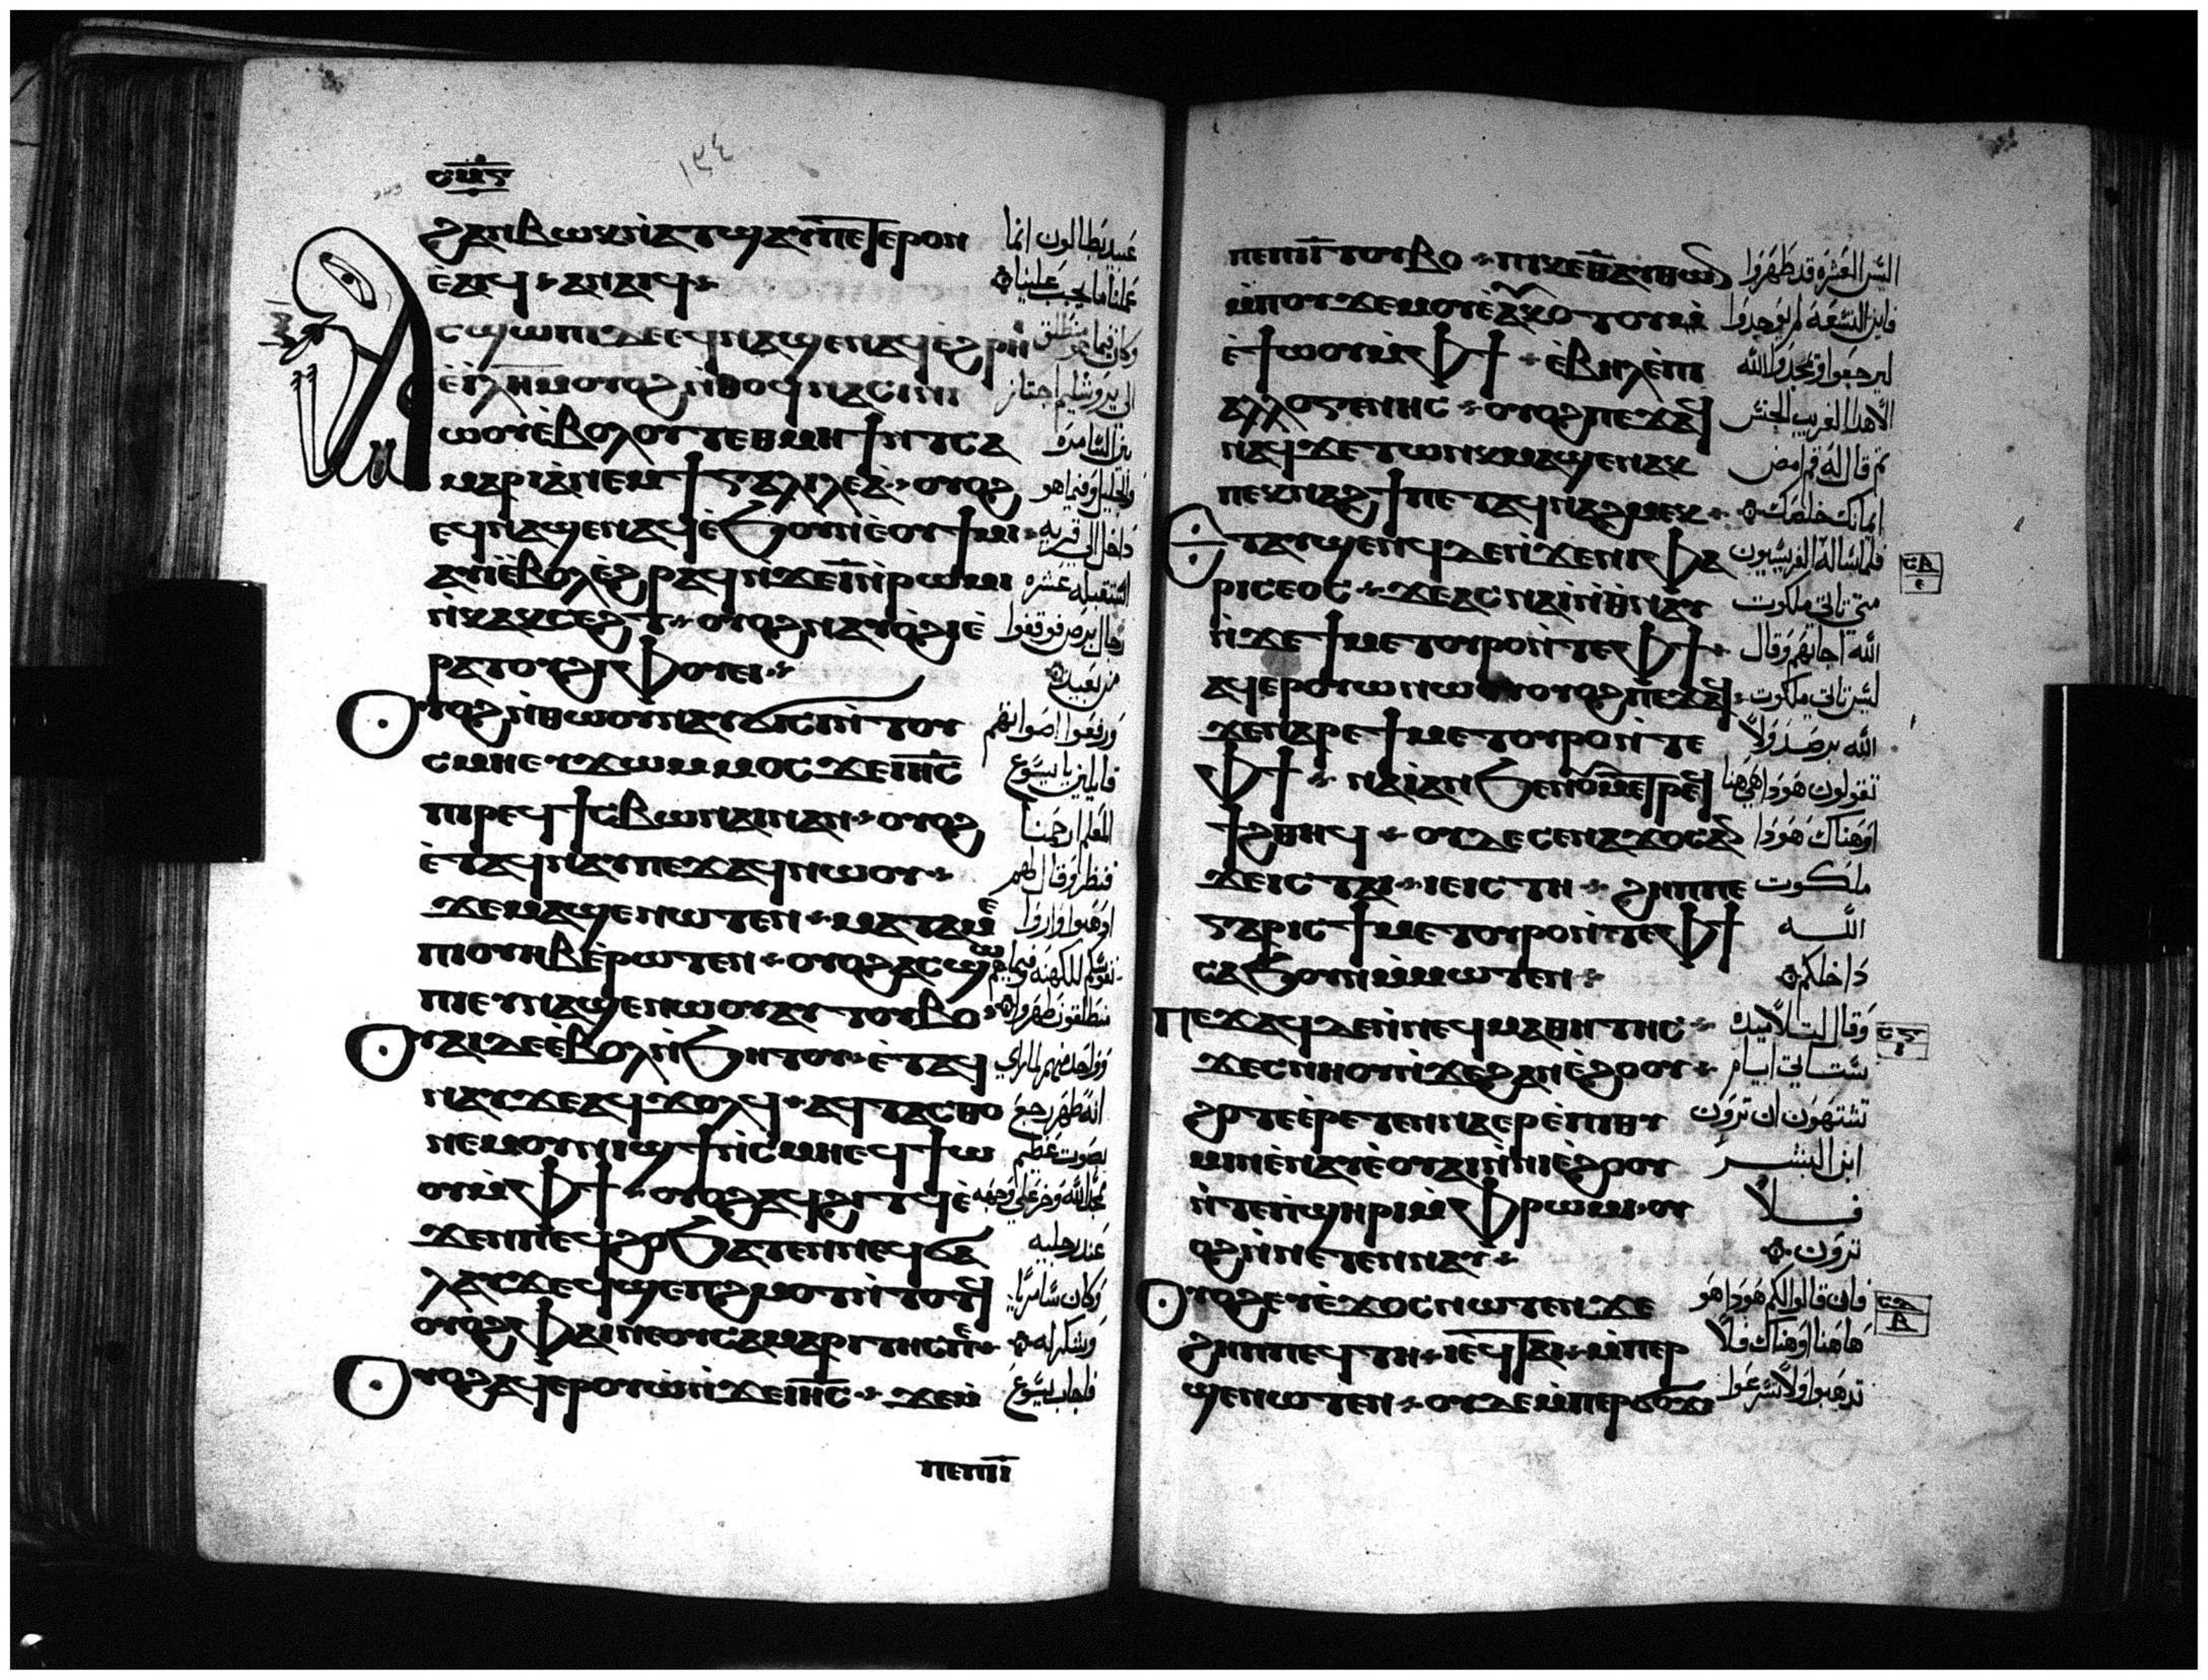 ⲥⲙⲋ
١٣٤
ϩⲁⲛⲃⲱⲕⲛ̀ⲁⲧϣⲁⲩⲡⲉⲧⲉⲣⲟⲛ
ⲉ̀ⲁⲓϥ ⲁⲛⲁⲓϥ
ⲁⲥϣⲱⲡⲓⲇⲉⲉϥⲛⲁϣⲉⲛⲁϥⲉ̀ϩⲣⲏⲓ
ⲉ̀ⲓ̅ⲗ̅ⲏ̅ⲙ̅ⲟⲩⲟϩⲛ̀ⲑⲟϥⲛⲁⲥⲓⲛⲓ
ⲱⲟⲩⲉ̀ⲃⲟⲗⲟⲩⲧⲉⲑⲙⲏϯⲛⲧⲥⲁ
ⲙⲁⲣⲓⲁ̀ⲛⲉⲙϯⲅⲁⲗⲓⲗⲉⲁ̀ ⲟⲩⲟϩ
ⲉϥⲛⲁϣⲉⲛⲁϥⲉ̀ϧⲟⲩⲛⲉ̀ⲟⲩϯⲙⲓ
ⲁⲩⲓ̀ⲉ̀ⲃⲟⲗⲉ̀ϩⲣⲁϥⲛ̀ϫⲉⲓ̅ⲛ̀ⲣⲱⲙⲓ
ⲛ̀ⲕⲁⲕⲥⲉϩⲧ ⲟⲩⲟϩⲛⲁⲩⲟ̀ϩⲓⲉ̀
ⲣⲁⲧⲟⲩϩⲓⲫⲟⲩⲉⲓ
ⲟⲩⲟϩⲛ̀ⲑⲱⲟⲩⲛⲁⲩϭⲓⲥⲛ̀ⲧⲟⲩ
ⲥⲙⲏⲉⲩϫⲱⲙⲙⲟⲥϫⲉⲓⲏ̅ⲥ̅
ⲡⲓⲣⲉϥϯⲥⲃⲱⲛⲁⲓⲛⲁⲛ ⲟⲩⲟϩ
ⲉ̀ⲧⲁϥⲛⲁⲩⲡⲉϫⲁϥⲛⲱⲟⲩ
ϫⲉⲙⲁϣⲉⲛⲱⲧⲉⲛ ⲙⲁⲧⲁⲙⲉ
ⲡⲓⲟⲩⲏⲃⲉ̀ⲣⲱⲧⲉⲛ ⲟⲩⲟϩⲁⲥϣⲱ
ⲡⲓⲉⲩⲛⲁϣⲉⲛⲱⲟⲩⲁⲩⲧⲟⲩⲃⲟ
ⲟⲩⲁⲓⲇⲉⲉ̀ⲃⲟⲗⲛ̀ϧⲏⲧⲟⲩ ⲉ̀ⲧⲁϥ
ⲛⲁⲩϫⲉⲁϥϫⲟⲗϥ ⲁϥⲧⲁⲥⲑⲟ
ⲛⲉⲙⲟⲩⲛⲓϣϯⲛ̀ⲥⲙⲏⲉϥϯⲱ
ⲟⲩⲙ̀ⲫϯ ⲟⲩⲟϩⲁϥϩⲓⲧϥⲉ̀
ϫⲉⲛⲡⲉϥϩⲟϧⲁⲧⲉⲛⲛⲉϥϭⲁ
ⲗⲁⲩϫⲉϥϣⲉⲡϩⲙⲟⲧⲛ̀ⲧⲟⲧϥ
ⲟⲩⲟϩⲫⲁⲓⲛⲉⲟⲩⲥⲁⲙⲁⲣⲓⲧⲏⲥⲡⲉ
ⲟⲩⲟϩⲁϥⲉⲣⲟⲩⲱ̀ⲛ̀ϫⲉⲓⲏ̅ⲥ̅ ϫⲉⲙ̀
ⲡⲉⲡⲓⲓ̅
عبيد بطالون انما
عملنا ما يجب علينا
وكان فيما هو منطلق
الى يروشليم اجتاز
بين السامرة
والجليل وفيما هو
داخل الى قرية
استقبله عشرة
رجال برص فوقفوا
من بعيد
ورفعوا اصواتهم
قايلين يا يسوع
المعلم ارحمنا
فنظر وقال لهم
اذهبوا واروا
نفوسكم للكهنة وفيما هم
منطلقون طهروا
وواحد منهم لما راى
انه طهر رجع
بصوت عظيم
يمجد الله وخر على وجهه
عند رجليه
وكان سامريا
وشكر له
فاجاب يسوع
ⲡⲉⲡⲓⲓ̅ⲧⲟⲩⲃⲟ ⲡⲓⲕⲉⲑ̅ⲁⲩⲑⲱⲛ
ⲙ̀ⲡⲟⲩϫⲉⲙⲟⲩⲉ̀ⲁⲩⲕⲟⲧⲟⲩⲙ̀
ⲉ̀ϯⲱⲟⲩⲙ̀ⲫϯ ⲉ̀ⲃⲏⲗⲉ̀ⲡⲓ
ⲁⲗⲗⲟⲅⲉⲛⲏⲥ ⲟⲩⲟϩⲡⲉϫⲁϥ
ⲛⲁϥϫⲉⲧⲱⲛⲕⲙⲁϣⲉⲛⲁⲕ
ⲡⲉⲕⲛⲁϩϯⲡⲉⲧⲁϥⲛⲁϩⲙⲉⲕ
ⲉⲧⲁⲩϣⲉⲛϥⲇⲉⲛ̀ϫⲉⲛⲓⲫⲁ
ⲣⲓⲥⲉⲟⲥ ϫⲉⲁⲥⲛⲁⲓ̀ⲛ̀ⲑⲛⲁⲩ
ⲛ̀ϫⲉϯⲙⲉⲧⲟⲩⲣⲟⲛ̀ⲧⲉⲫϯ
ⲁϥⲉⲣⲟⲩⲱⲛⲱⲟⲩⲟⲩⲟϩⲡⲉϫⲁϥ
ϫⲉⲛⲁⲣⲉϯⲙⲉⲧⲟⲩⲣⲟⲛ̀ⲧⲉ
ⲫϯ ⲛⲁⲓ̀ⲁⲛϧⲉⲛⲟⲩⲙⲉⲧⲣⲉϥ
ϯϩⲑⲏϥ ⲟⲩⲇⲉⲥⲉⲛⲁϫⲟⲥⲁⲛ
ϫⲉⲓⲥⲧⲁⲓ ⲓⲉⲓⲥⲧⲏ ϩⲏⲡⲡⲉ
ⲅⲁⲣⲓⲥϯⲙⲉⲧⲟⲩⲣⲟⲛ̀ⲧⲉⲫϯ
ⲥⲁϧⲟⲩⲛⲙ̀ⲙⲱⲧⲉⲛ
ⲡⲉϫⲁϥⲇⲉⲛ̀ⲛⲉϥⲙⲁⲑⲏⲧⲏⲥ
ϫⲉⲥⲛⲏⲟⲩⲛ̀ϫⲉϩⲁⲛⲉ̀ϩⲟⲟⲩ
ϩⲟⲧⲉⲉ̀ⲣⲉⲧⲉⲛⲛⲁⲉⲣⲉ̀ⲡⲓⲑⲩ
ⲙⲓⲛⲉ̀ⲛⲁⲩⲉ̀ⲟⲩⲁⲓⲛ̀ⲛⲓⲉ̀ϩⲟⲟⲩ
ⲛ̀ⲧⲉⲡ̀ϣⲏⲣⲓⲙ̀ⲫⲣⲱⲙⲓ ⲟⲩ
ⲟϩⲛ̀ⲛⲉⲧⲉⲛⲛⲁⲩ
ⲟⲩⲟϩⲉⲩⲉ̀ϫⲟⲥⲛⲱⲧⲉⲛϫⲉ
ϩⲏⲡⲡⲉϥⲧⲏ ⲓⲉϥⲧⲁⲓ ⲙ̀ⲡⲉⲣ
ϣⲉⲛⲱⲧⲉⲛ ⲟⲩⲇⲉⲙ̀ⲡⲉⲣϭⲟϫⲓ
اليس العشرة قد طهروا
فاين التسعة لم يوجدوا
ليرجعوا ويمجدوا الله
الا هذا الغريب الجنس
ثم قال له قم امض
ايمانك خلصك
فلما ساله الفريسيون
متى تاتى ملكوت
الله اجابهم وقال
ليس تاتى ملكوت
الله برصد ولا
تقولون هوذا هى هنا
او هناك هوذا
ملكوت
الله
داخلكم
وقال لتلاميذه
ستاتى ايام
تشتهون ان ترون
ابن البشر
فلا
ترون
فان قالوا لكم هوذا هو
هاهنا او هناك فلا
تذهبوا ولا تسرعوا